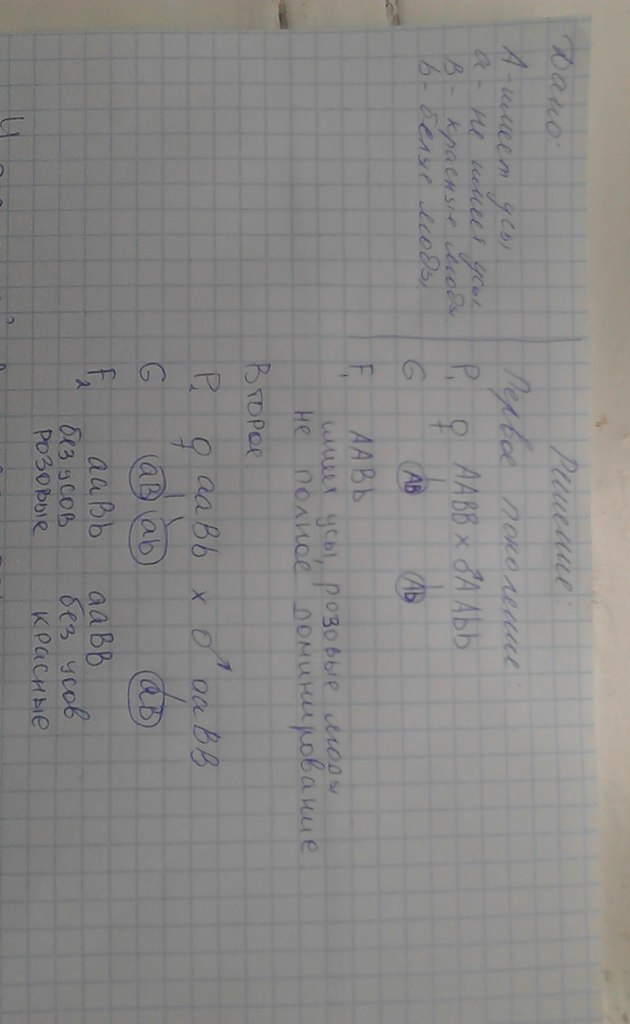 Дано:
A - имеет усы
a - не имеет усы
B - красные плоды
b - белые плоды
Решение:
Первое поколение:
P₁ ♀ AABB x ♂AAbb
G AB Ab
F₁ AABb
имеет усы, розовые плоды
не полное доминирование
Второе
P₂ ♀ aaBb x ♂ aaBB
G aB ab aB
F₂ aaBb aaBB
без усов без усов
розовые красные